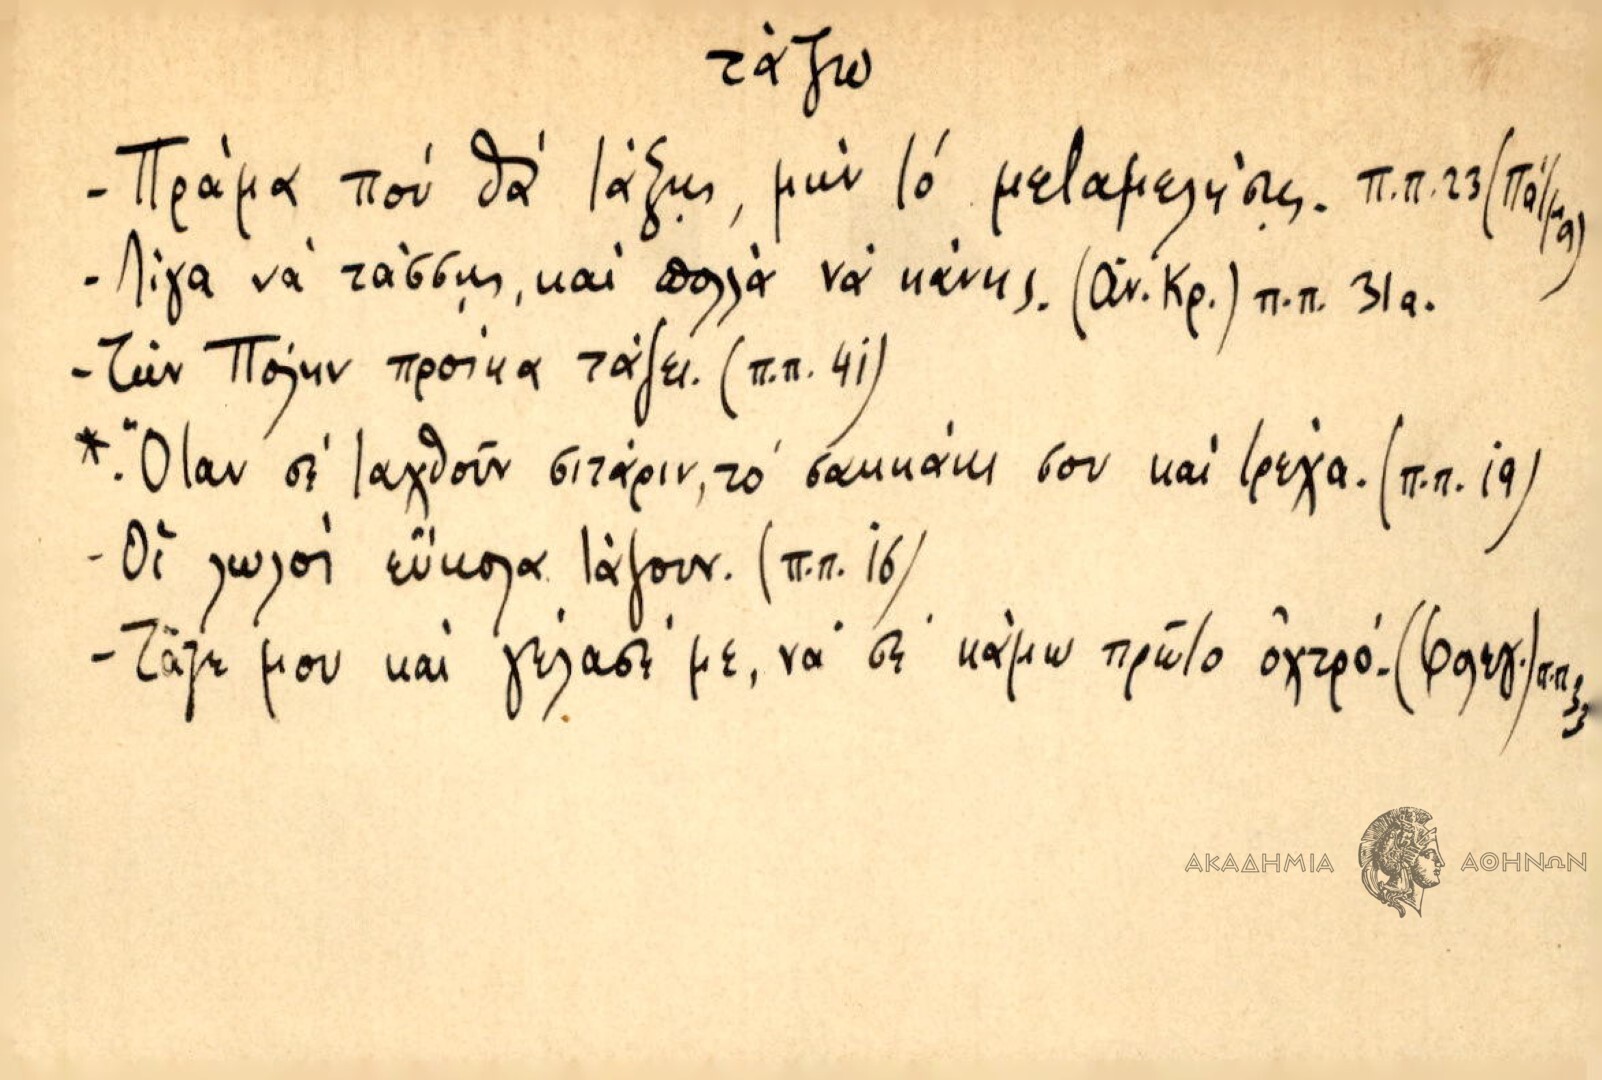 τάζω
- Πράμα πού θά τάξῃς, μήν τό μεταμελήσῃς. π.π. 23 (Πάτμα)
- Λίγα νά τάσσῃς, καί πολλά νά κάνῃς. (Ἀν. Κρ.) π.π. 31α.
- Τήν Πόλην προίκα τάζει. (π.π. 41)
* . Ὅταν σέ ταχθοῦν σιτάριν, τό σακκάκι σου καί τρέχα. (π.π. 19)
- Οἱ λωλοί εὔκολα τάζουν. (π.π. 16)
- Τάζε μου καί γέλασέ με, νά σέ κάμω πρῶτο ὀχτρό. (Φλεγ.) π.π. 33
ΑΚΑΔΗΜΙΑ ΑΘΗΝΩΝ